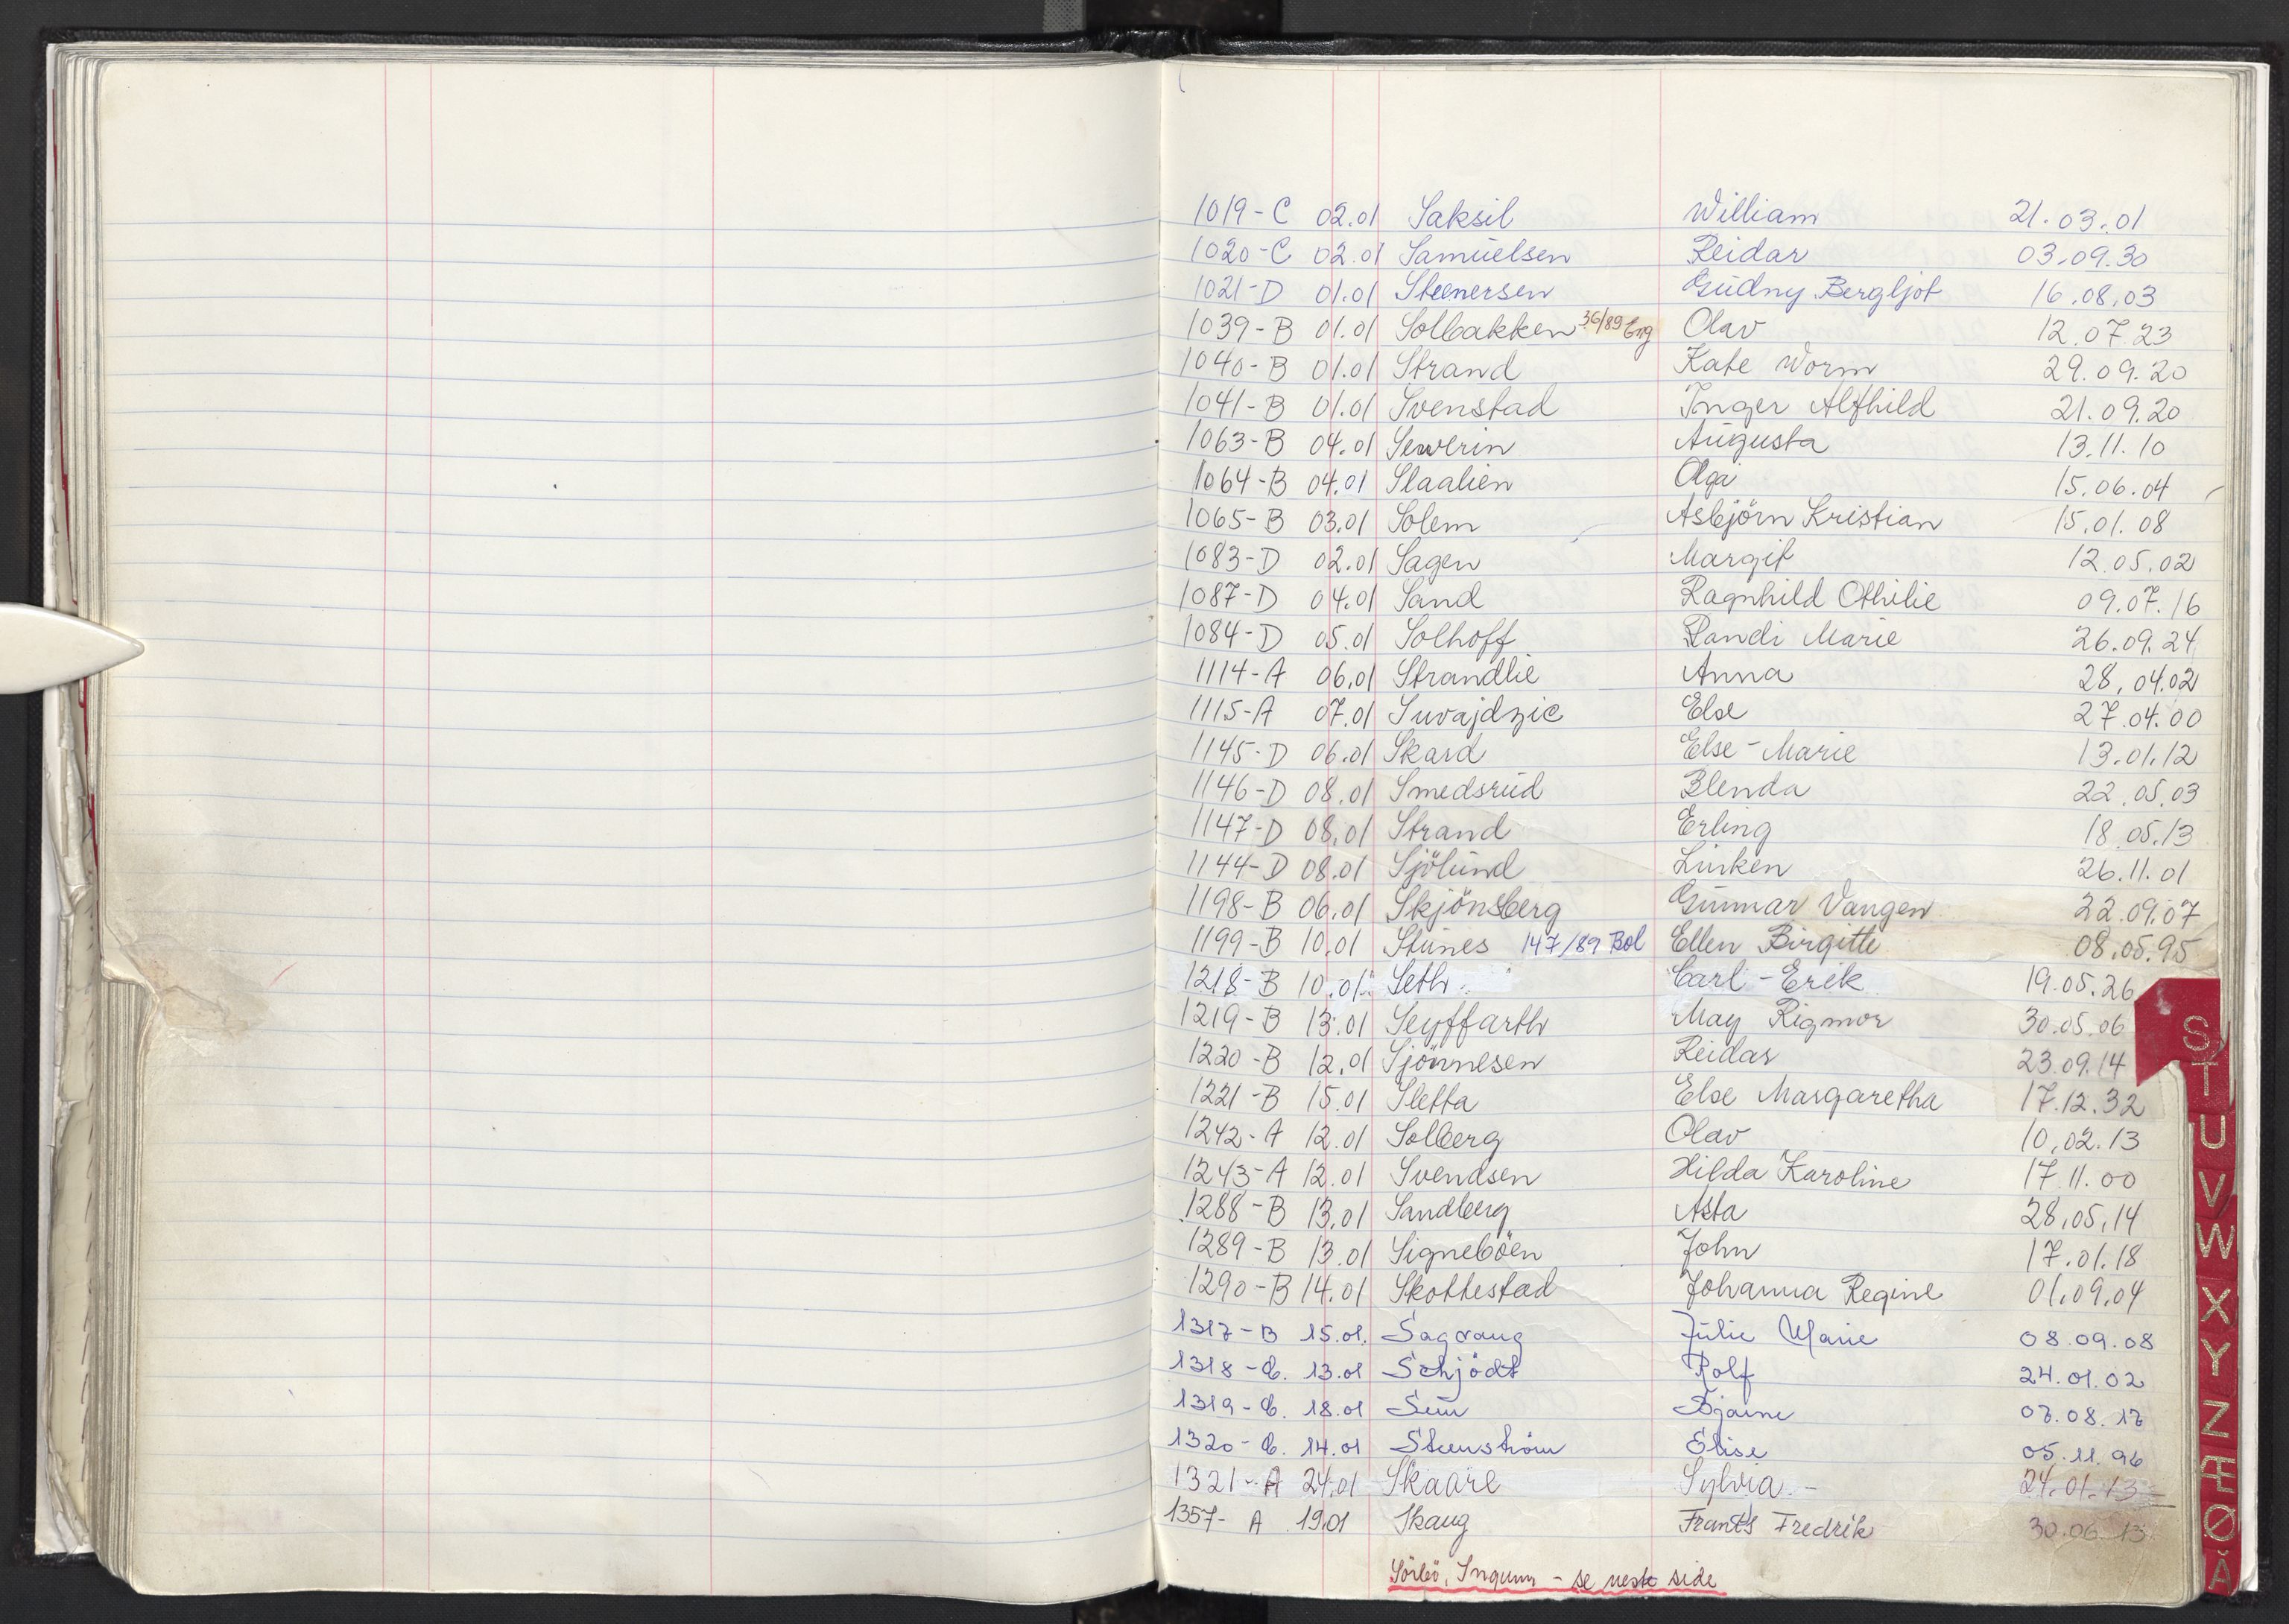 1019-C 02.01 Saksil William 21.03.01
1020-C 02.01 Samuelsen Reidar 03.09.30
1021-D 01.01 Steenersen Gudny Bergljot 16.08.03
1039-B 01.01 Solbakken 36/89 Eng Olav 12.07.23
1040-B 01.01 Strand Kate Worm 29.09.20
1041-B 01.01 Svenstad Inger Alfhild 21.09.20
1063-B 04.01 Severin Augusta 13.11.10
1064-B 04.01 Slaalien Olga 15.06.04
1065-B 03.01 Solem Asbjörn Kristian 15.01.08
1083-D 02.01 Sagen Margit 12.05.02
1087-D 04.01 Sand Ragnhild Othilie 09.07.16
1084-D 05.01 Solhoff Randi Marie 26.09.24
1114-A 06.01 Strandlie Anna 28.04.02
1115-A 07.01 Suvajdzic Else 27.04.00
1145-D 06.01 Skard Else-Marie 13.01.12
1146-D 08.01 Smedsrud Blenda 22.05.03
1147-D 08.01 Strand Erling 18.05.13
1144-D 08.01 Sjölund Linken 26.11.01
1198-B 06.01 Skjönsberg Gunnar Vangen 22.09.07
1199-B 10.01 Stunes 147/89 Bol Ellen Birgitte 08.05.95
1218-B 10.01 Seth Carl-Erik 19.05.26
1219-B 13.01 Seyffarth May Rigmor 30.05.06
1220-B 12.01 Sjönnesen Reidar 23.09.14
1221-B 15.01 Sletta Else Margaretha 17.12.32
1242-A 12.01 Solberg Olav 10.02.13
1243-A 12.01 Svendsen Hilda Karoline 17.11.00
1288-B 13.01 Sandberg Asta 28.05.14
1289-B 13.01 Signeböen John 17.01.18
1290-B 14.01 Skottestad Johanna Regine 01.09.04
1317-B 15.01. Sagvang Julie Marie 08.09.08
1318-C. 13.01 Schjödt Rolf 24.01.02
1319-C. 18.01 Sem Bjarne 07.08.17
1320-C. 14.01 Steenström Elise 05.11.96
1321-A 24.01 Skaare Sylvia - 24.01.13
1357- A 19.01 Skaug Frants Fredrik 30.06.13
Sörbö, Ingunn - se neste side
S
T
U
V
W
X
Y
Z
Æ
Ø
Å